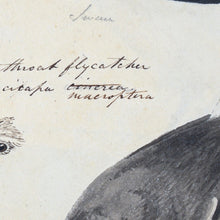 Swan
throat flycatcher
cicapa cinerea
macroptera